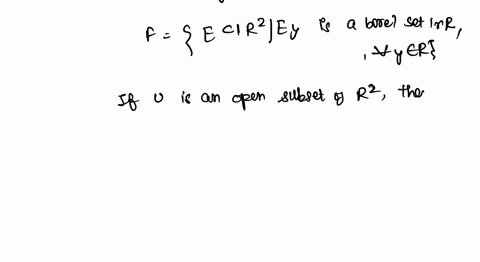 F = { E ⊂ IR² | Ey is a borel set in R,
, ∀ y ∈ R}
If U is an open subset of R², the